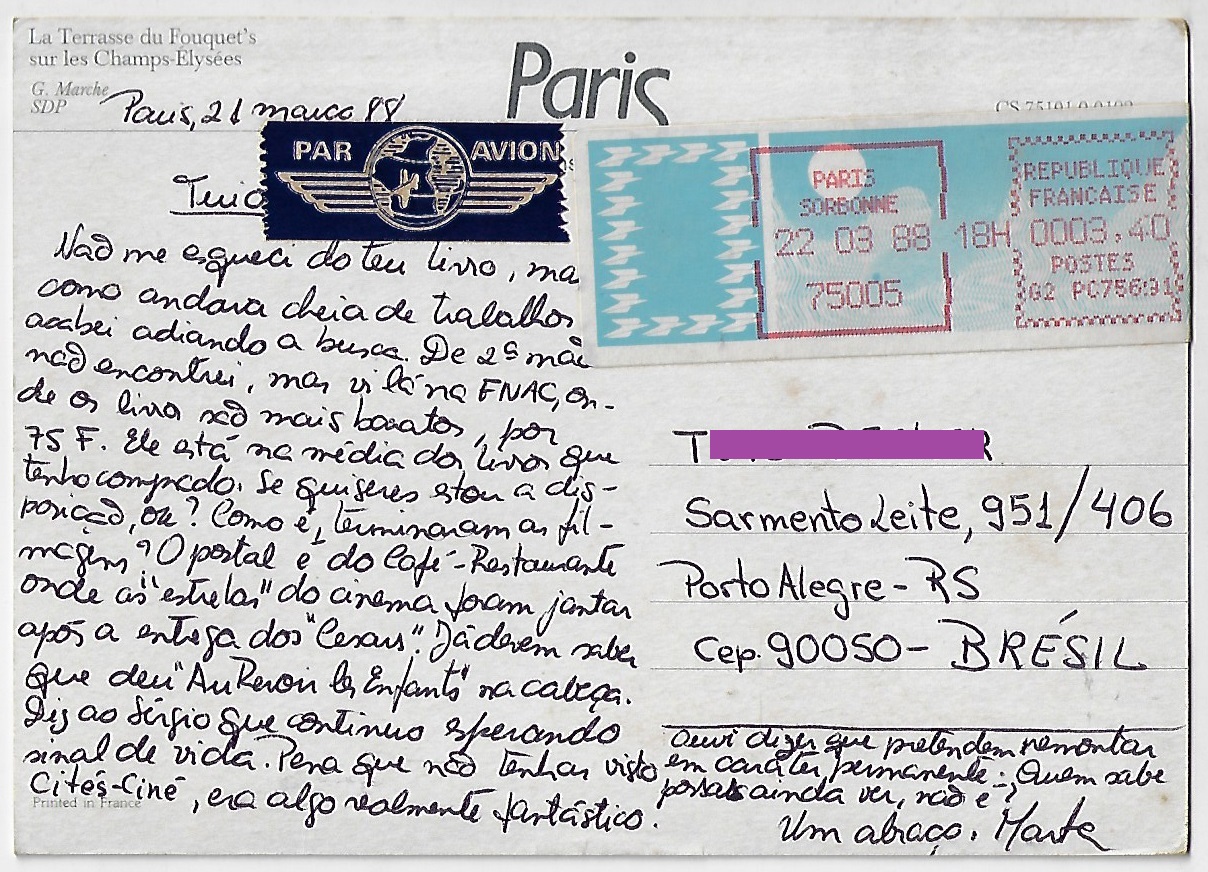 La Terrasse du Fouquet's
sur les Champs-Elysées
G. Marche
SDP
Paris
Paris, 21 março 88
PAR AVION
PARIS
SORBONNE
22 03 88 18H
75005
REPUBLIQUE
FRANCAISE
0003,40
POSTES
02 PC75691
Não me esqueci do teu livro, mas
como andava cheia de trabalhos
acabei adiando a busca. De 2ª mão
não encontrei, mas vi lá na FNAC, on-
de os livros são mais baratos, por
75 F. Ele está na média dos livros que
tenho comprado. Se quiseres estou a dis-
posição, ok? Como é, terminaram as fil-
magens? O postal é do Café-Restaurante
onde as "estrelas" do cinema foram jantar
após a entrega dos "Cesars". Já devem saber
que deu "Au Revoir les Enfants" na cabeça.
Diz ao Sérgio que continuo esperando
sinal de vida. Pena que não tenhas visto
Cités-Ciné, era algo realmente fantástico.
Printed in France
Sarmento Leite, 951/406
Porto Alegre - RS
Cep. 90050 - BRÉSIL
Ouvi dizer que pretendem remontar
em caráter permanente. Quem sabe
possas ainda ver, não é?
Um abraço. Marta